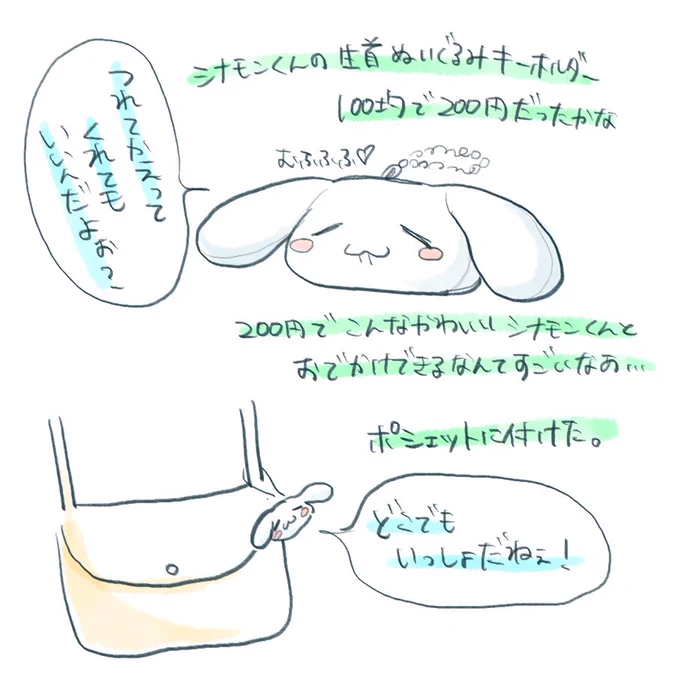 シナモンくんの 生首 ぬいぐるみキーホルダー
100均で200円だったかな
つれてかえって
くれても
いいんだよおっ
むふふふ♡
200円でこんなかわいいシナモンくんと
おでかけできるなんてすごいなあ…
ポシェットに付けた。
どこでも
いっしょだねぇ!